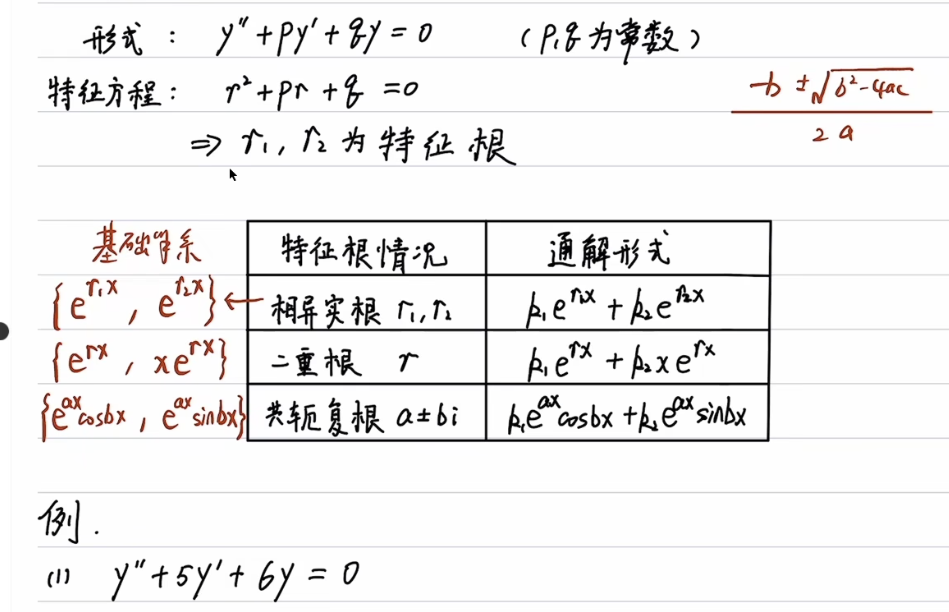 形式： y″+py′+qy=0 （p,q为常数）
特征方程： r²+pr+q=0
-b±√(b²-4ac) / 2a
⇒ r₁, r₂为特征根
基础解系 特征根情况 通解形式
{e^{r₁x}, e^{r₂x}} ← 相异实根 r₁,r₂ k₁e^{r₁x}+k₂e^{r₂x}
{e^{rx}, xe^{rx}} 二重根 r k₁e^{rx}+k₂xe^{rx}
{e^{ax}cosbx, e^{ax}sinbx} 共轭复根 a±bi k₁e^{ax}cosbx+k₂e^{ax}sinbx
例.
(1) y″+5y′+6y=0